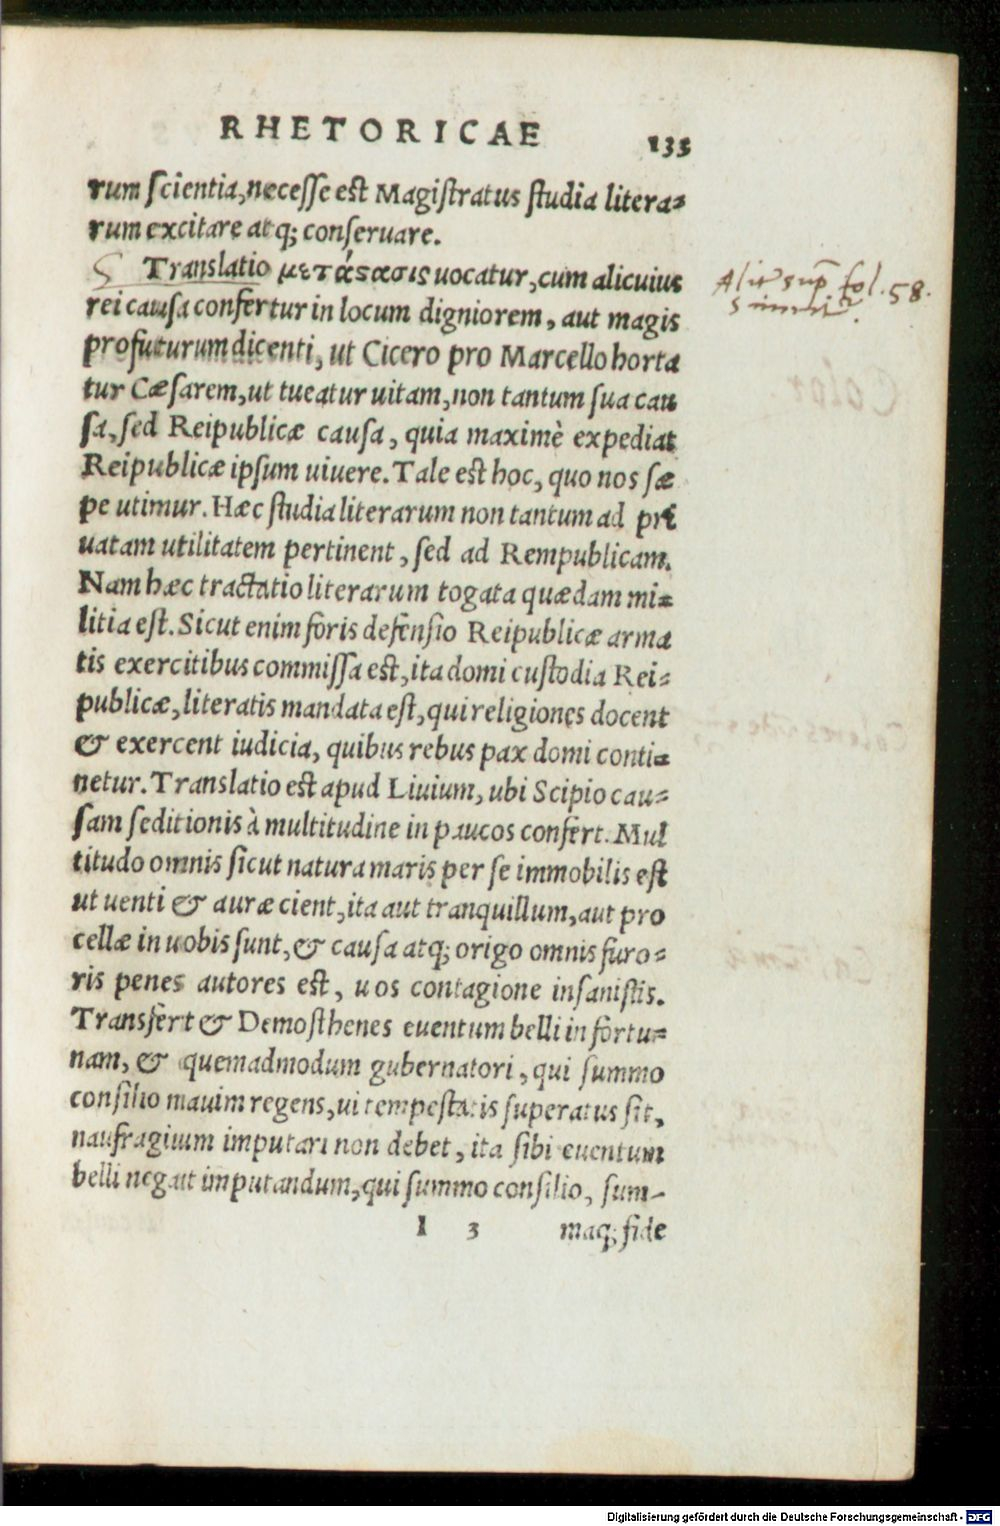 RHETORICAE 133
rum scientia, necesse est Magistratus studia litera=
rum excitare atq; conseruare.
Translatio μετάςασις uocatur, cum alicuius
rei causa confertur in locum digniorem, aut magis
profuturum dicenti, ut Cicero pro Marcello horta
tur Cæsarem, ut tueatur uitam, non tantum sua cau
sa, sed Reipublicæ causa, quia maximè expediat
Reipublicæ ipsum uiuere. Tale est hoc, quo nos sæ
pe utimur. Hæc studia literarum non tantum ad pri
uatam utilitatem pertinent, sed ad Rempublicam.
Nam hæc tractatio literarum togata quædam mi=
litia est. Sicut enim foris defensio Reipublicæ arma
tis exercitibus commissa est, ita domi custodia Rei=
publicæ, literatis mandata est, qui religiones docent
& exercent iudicia, quibus rebus pax domi conti=
netur. Translatio est apud Liuium, ubi Scipio cau=
sam seditionis à multitudine in paucos confert. Mul
titudo omnis sicut natura maris per se immobilis est
ut uenti & auræ cient, ita aut tranquillum, aut pro
cellæ in uobis sunt, & causa atq; origo omnis furo=
ris penes autores est, uos contagione insanistis.
Transfert & Demosthenes euentum belli in fortu=
nam, & quemadmodum gubernatori, qui summo
consilio nauim regens, ui tempestatis superatus sit,
naufragium imputari non debet, ita sibi euentum
belli negat imputandum, qui summo consilio, sum=
I 3 maq; fide
fol. 58.
Digitalisierung gefördert durch die Deutsche Forschungsgemeinschaft - DFG